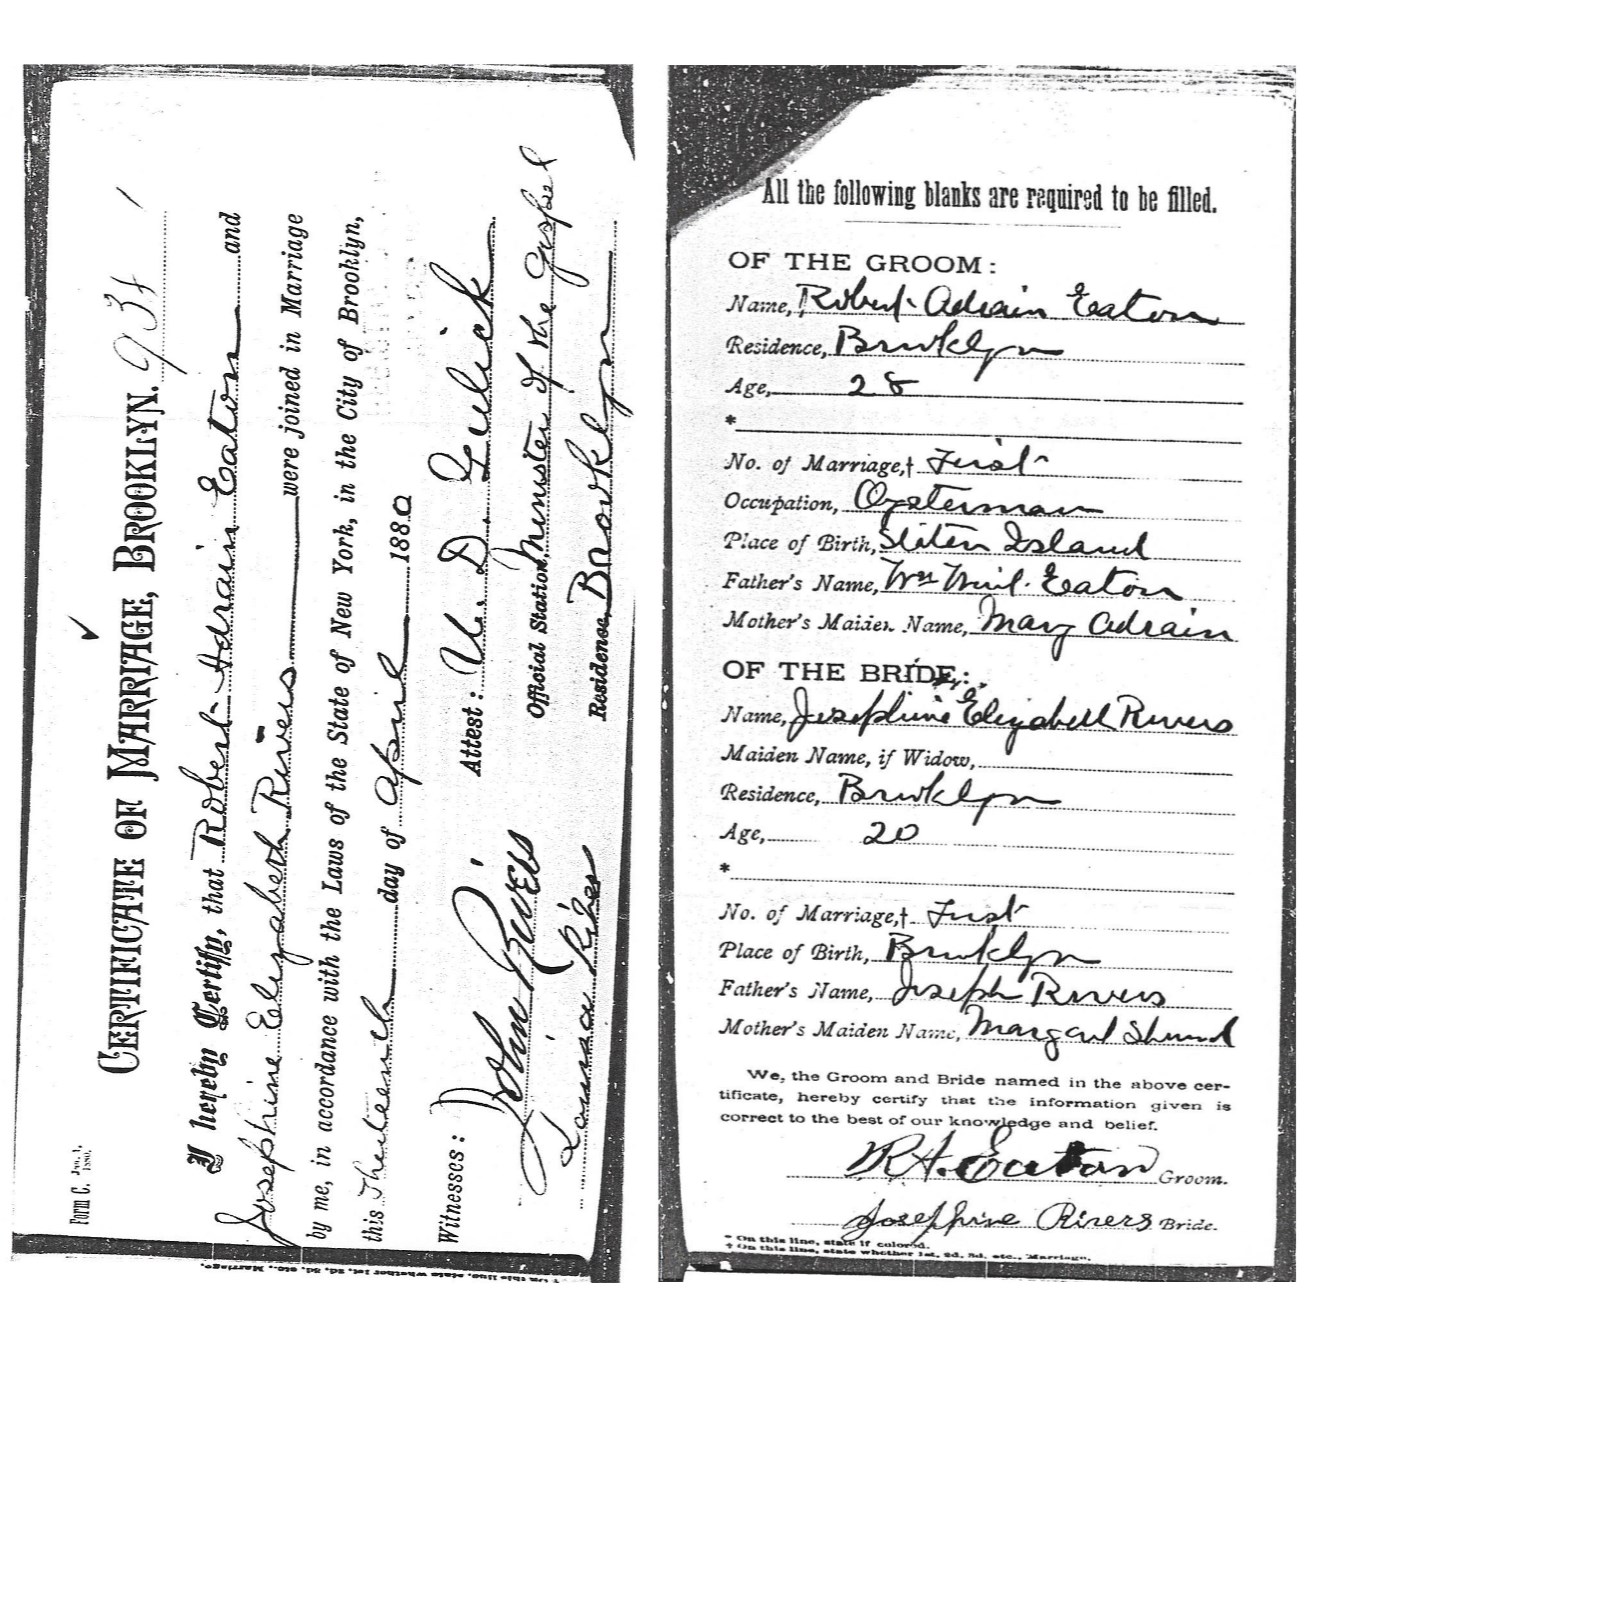 Form C. Jan. 1, 1880.
CERTIFICATE OF MARRIAGE, BROOKLYN. 934
I hereby Certify, that Robert Adrain Eaton and
Josephine Elizabeth Rivers were joined in Marriage
by me, in accordance with the Laws of the State of New York, in the City of Brooklyn,
this Thirteenth day of April 1880
Witnesses: Attest: U. D. Gulick
John Rivers Official Station, Minister of the Gospel
Louisa Residence, Brooklyn
† On this line, state whether 1st, 2d, 3d, etc., Marriage.
All the following blanks are required to be filled.
OF THE GROOM:
Name, Robert Adrain Eaton
Residence, Brooklyn
Age, 28
*
No. of Marriage,† First
Occupation, Oysterman
Place of Birth, Staten Island
Father's Name, Wm Eaton
Mother's Maiden Name, Mary Adrain
OF THE BRIDE:
Name, Josephine Elizabeth Rivers
Maiden Name, if Widow,
Residence, Brooklyn
Age, 20
*
No. of Marriage,† First
Place of Birth, Brooklyn
Father's Name, Joseph Rivers
Mother's Maiden Name, Margaret
We, the Groom and Bride named in the above cer-
tificate, hereby certify that the information given is
correct to the best of our knowledge and belief.
R. A. Eaton Groom.
Josephine Rivers Bride.
* On this line, state if colored.
† On this line, state whether 1st, 2d, 3d, etc., Marriage.